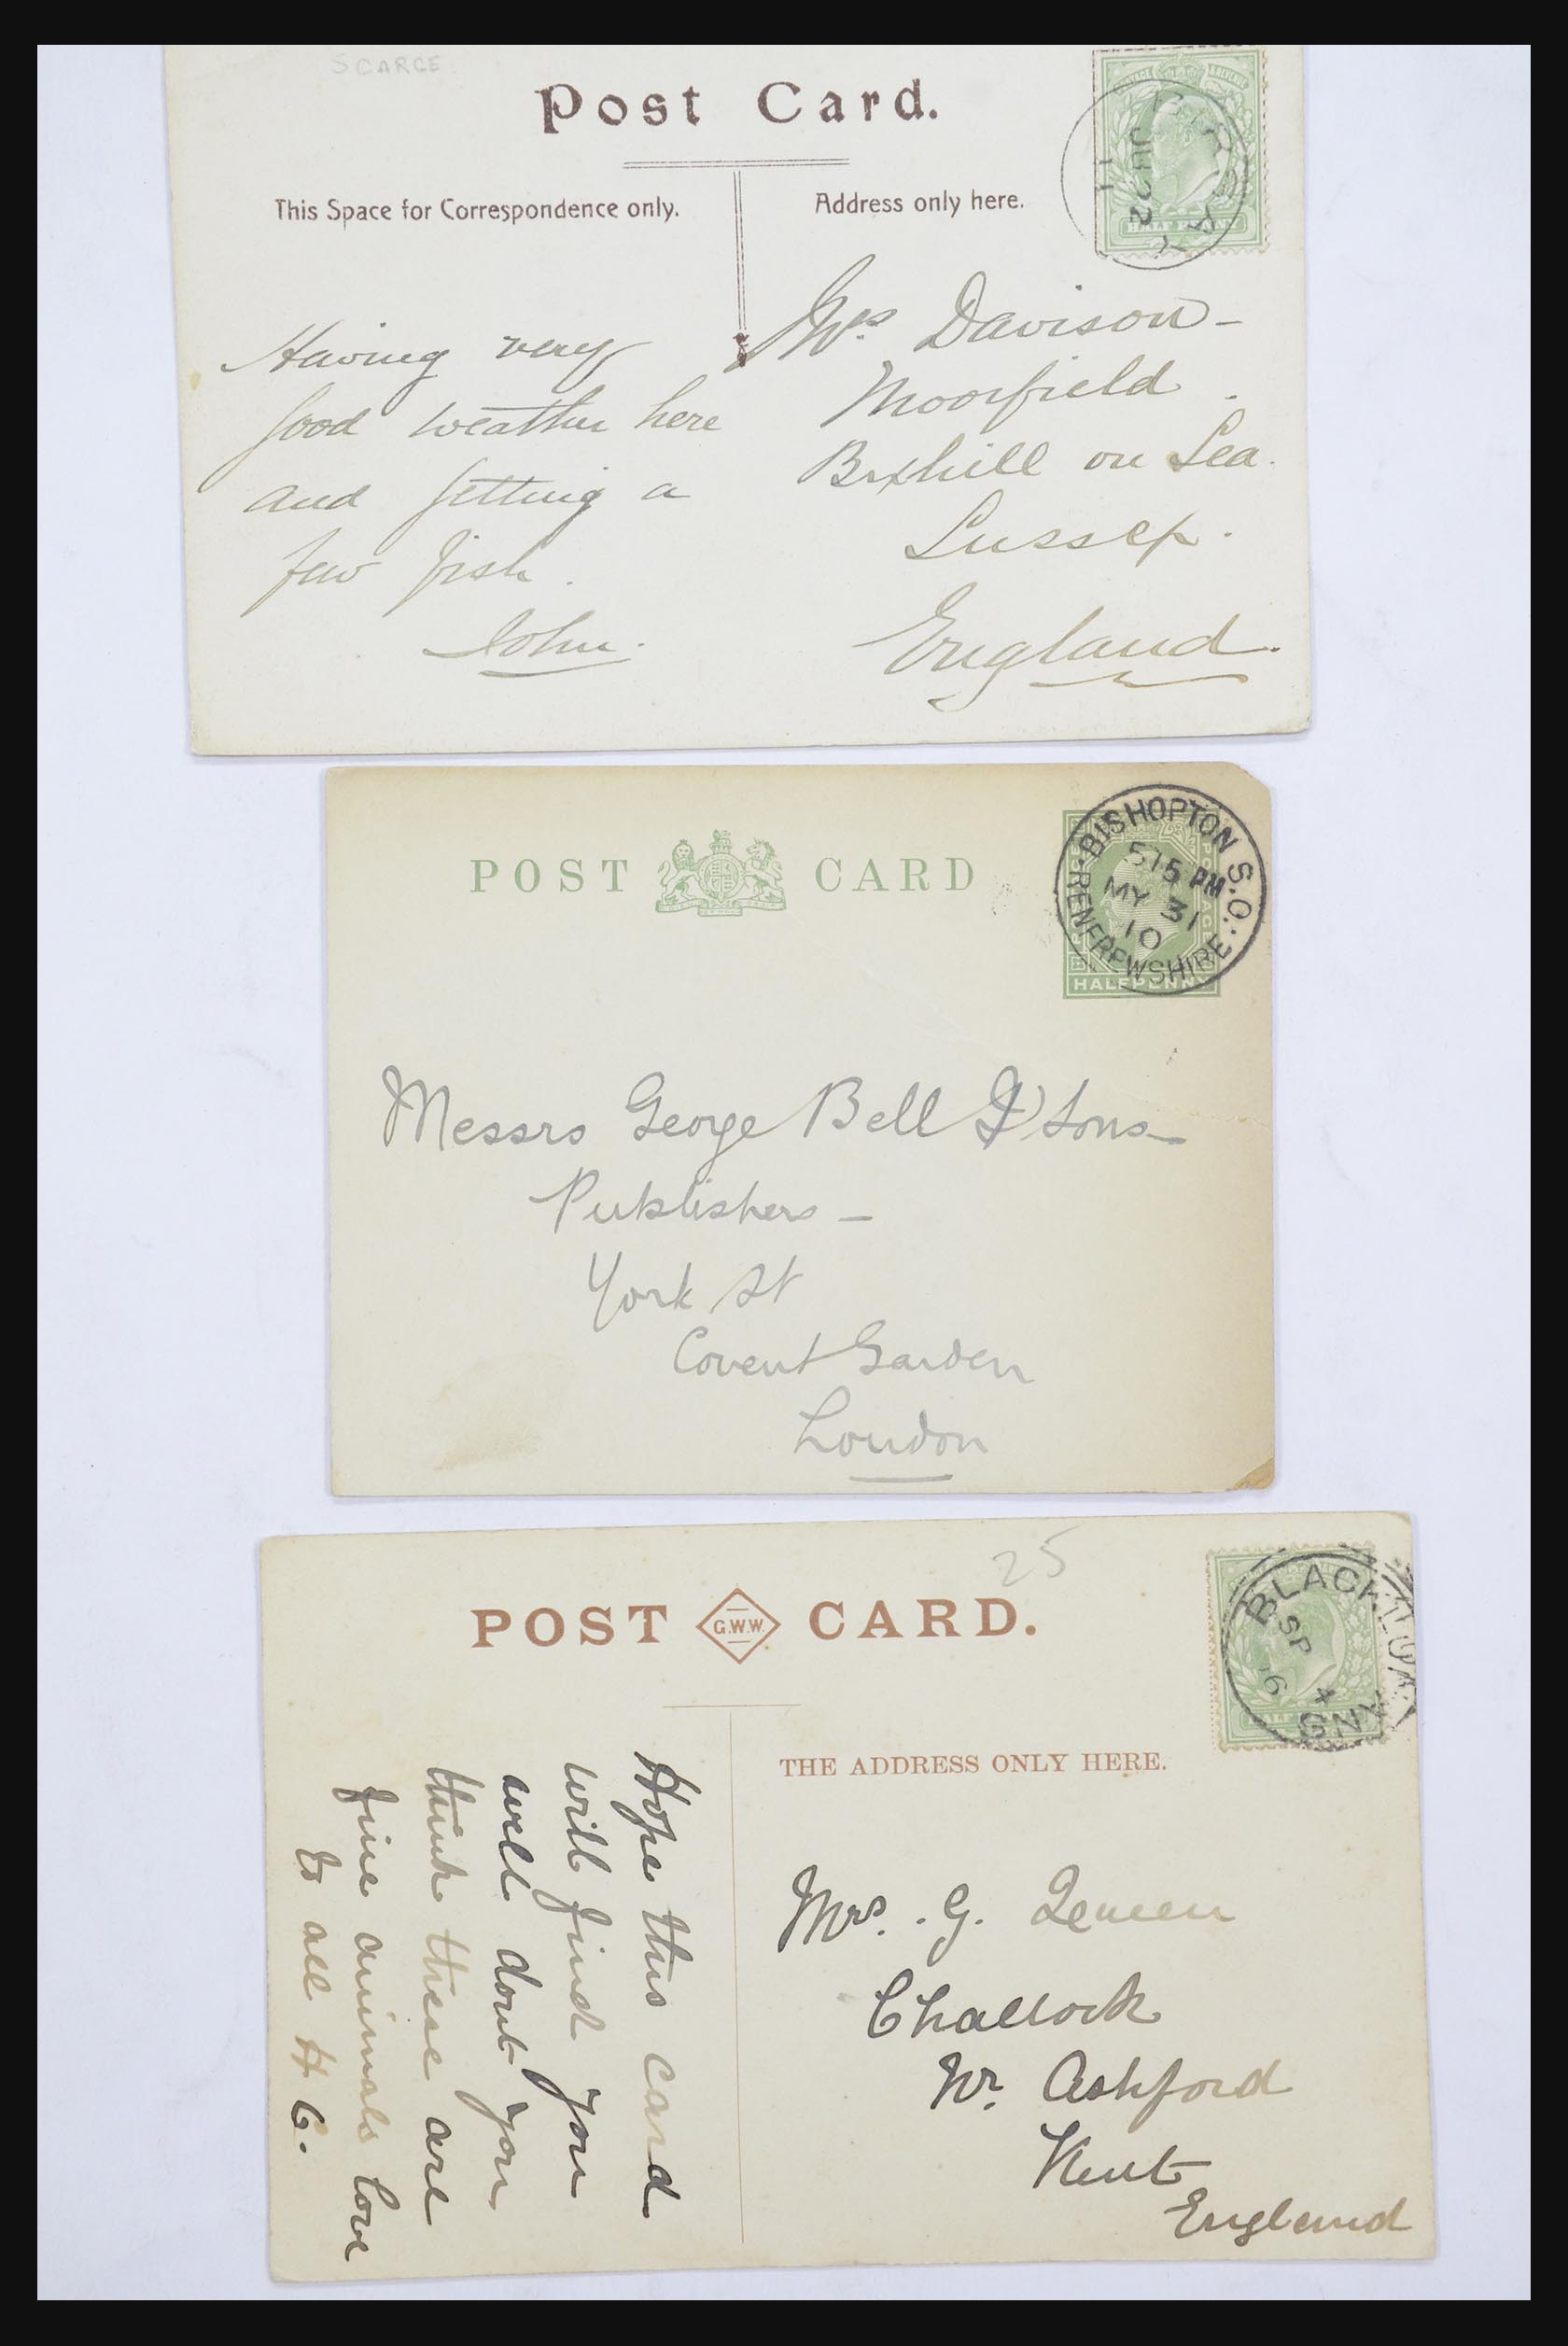 SCARCE
Post Card.
This Space for Correspondence only.
Address only here.
JU 22
11
HALF PENNY
Having very
good weather here
and getting a
few fish.
John.
Mrs. Davison -
Moorfield.
Bexhill on Sea.
Sussex.
England.
POST CARD
BISHOPTON S.O.
515 PM
MY 31
10
RENFREWSHIRE
HALFPENNY
Messrs George Bell & Sons
Publishers -
York St
Covent Garden
London
25
POST G.W.W. CARD.
BLACK
SP 4
6
THE ADDRESS ONLY HERE.
Hope this card
will find you
well dont you
think these are
fine animals love
to all H G.
Mrs. G.
Challock
Nr. Ashford
Kent
England